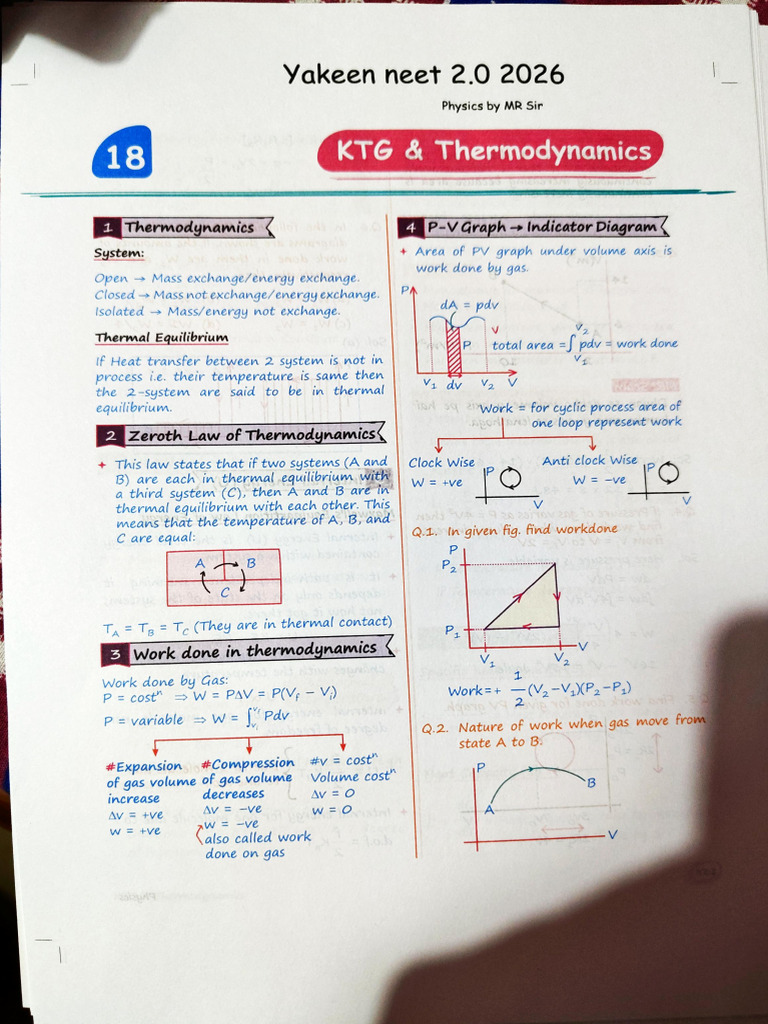 Yakeen neet 2.0 2026
Physics by MR Sir
18
KTG & Thermodynamics
1 Thermodynamics
System:
Open → Mass exchange/energy exchange.
Closed → Mass not exchange/energy exchange.
Isolated → Mass/energy not exchange.
Thermal Equilibrium
If Heat transfer between 2 system is not in
process i.e. their temperature is same then
the 2-system are said to be in thermal
equilibrium.
2 Zeroth Law of Thermodynamics
+ This law states that if two systems (A and
B) are each in thermal equilibrium with
a third system (C), then A and B are in
thermal equilibrium with each other. This
means that the temperature of A, B, and
C are equal:
A B
C
T_A = T_B = T_C (They are in thermal contact)
3 Work done in thermodynamics
Work done by Gas:
P = costⁿ ⇒ W = PΔV = P(V_f − V_i)
P = variable ⇒ W = ∫_{v_i}^{v_f} Pdv
#Expansion
of gas volume
increase
Δv = +ve
w = +ve
#Compression
of gas volume
decreases
Δv = −ve
w = −ve
also called work
done on gas
#v = costⁿ
Volume costⁿ
Δv = 0
w = 0
4 P-V Graph → Indicator Diagram
+ Area of PV graph under volume axis is
work done by gas.
P
dA = pdv
V
P
total area = ∫_{V₁}^{V₂} pdv = work done
V₁ dv V₂ V
Work = for cyclic process area of
one loop represent work
Clock Wise
W = +ve
P
V
Anti clock Wise
W = −ve
P
V
Q.1. In given fig. find workdone
P
P₂
P₁
V₁ V₂ V
Work=+ 1/2 (V₂−V₁)(P₂−P₁)
Q.2. Nature of work when gas move from
state A to B.
P
A
B
V